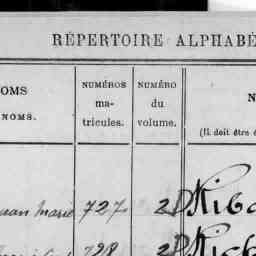 RÉPERTOIRE ALPHABÉ
OMS
NOMS.
NUMÉROS
ma-
tricules.
NUMÉRO
du
volume.
N
(Il doit être é
Marie 727 2
728 2